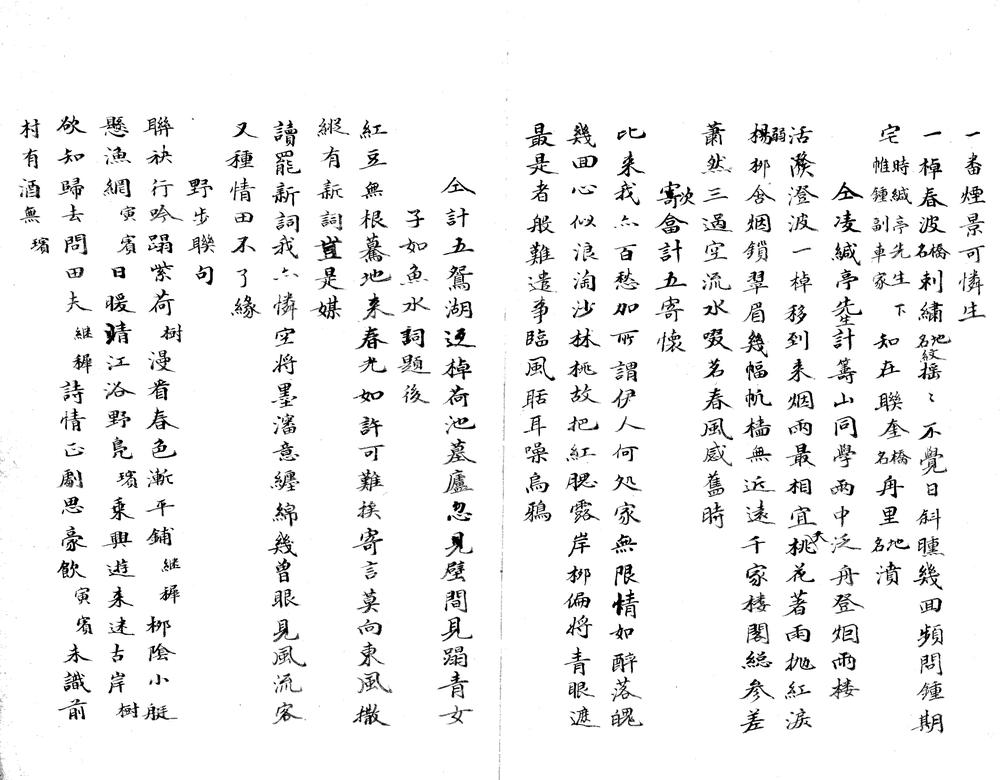 一番煙景可憐生
一棹春波橋名刺繡地名紋搖〻不覺日斜曛幾回頻問鍾期
宅時緘亭先生下帷鍾副車家知在聯奎橋名舟里地名濆
仝凌緘亭先生計籌山同學雨中泛舟登烟雨樓
活潑澄波一棹移到来烟雨最相宜桃花著雨抛紅淚
弱柳含烟鎖翠眉幾幅帆檣無近遠千家楼閣総參差
蕭然三過空流水啜茗春風感舊時
次會計五寄懷
此来我亦百愁加所謂伊人何処家無限情如醉落魄
幾回心似浪淘沙林桃故把紅腮露岸栁偏将青眼遮
最是者般難遣事臨風聒耳噪烏鴉
仝計五鴛湖返棹荷池墓廬忽見壁間見蹋青女
子如魚水詞題後
紅豆無根驀地来春光如許可難挨寄言莫向東風撒
縱有新詞豈是媒
讀罷新詞我亦憐空将墨瀋意纏綿幾曾眼見風流客
又種情田不了緣
野步聯句
聯袂行吟蹋紫荷樹漫看春色漸平鋪継穉栁陰小艇
懸漁網寅賓日暖晴江浴野鳧璸乗興遊来迷古岸樹
欲知歸去問田夫継穉詩情正劇思豪飲寅賓未識前
村有酒無璸